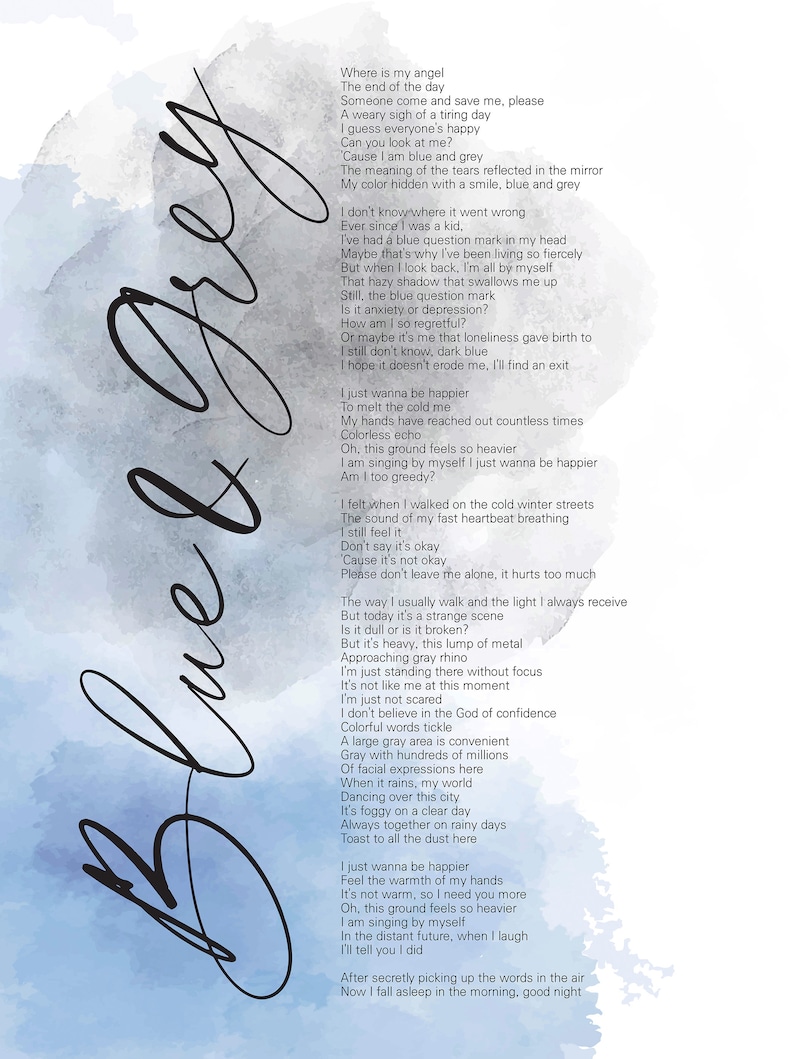 Blue & Grey
Where is my angel
The end of the day
Someone come and save me, please
A weary sigh of a tiring day
I guess everyone's happy
Can you look at me?
'Cause I am blue and grey
The meaning of the tears reflected in the mirror
My color hidden with a smile, blue and grey

I don't know where it went wrong
Ever since I was a kid,
I've had a blue question mark in my head
Maybe that's why I've been living so fiercely
But when I look back, I'm all by myself
That hazy shadow that swallows me up
Still, the blue question mark
Is it anxiety or depression?
How am I so regretful?
Or maybe it's me that loneliness gave birth to
I still don't know, dark blue
I hope it doesn't erode me, I'll find an exit

I just wanna be happier
To melt the cold me
My hands have reached out countless times
Colorless echo
Oh, this ground feels so heavier
I am singing by myself I just wanna be happier
Am I too greedy?

I felt when I walked on the cold winter streets
The sound of my fast heartbeat breathing
I still feel it
Don't say it's okay
'Cause it's not okay
Please don't leave me alone, it hurts too much

The way I usually walk and the light I always receive
But today it's a strange scene
Is it dull or is it broken?
But it's heavy, this lump of metal
Approaching gray rhino
I'm just standing there without focus
It's not like me at this moment
I'm just not scared
I don't believe in the God of confidence
Colorful words tickle
A large gray area is convenient
Gray with hundreds of millions
Of facial expressions here
When it rains, my world
Dancing over this city
It's foggy on a clear day
Always together on rainy days
Toast to all the dust here

I just wanna be happier
Feel the warmth of my hands
It's not warm, so I need you more
Oh, this ground feels so heavier
I am singing by myself
In the distant future, when I laugh
I'll tell you I did

After secretly picking up the words in the air
Now I fall asleep in the morning, good night